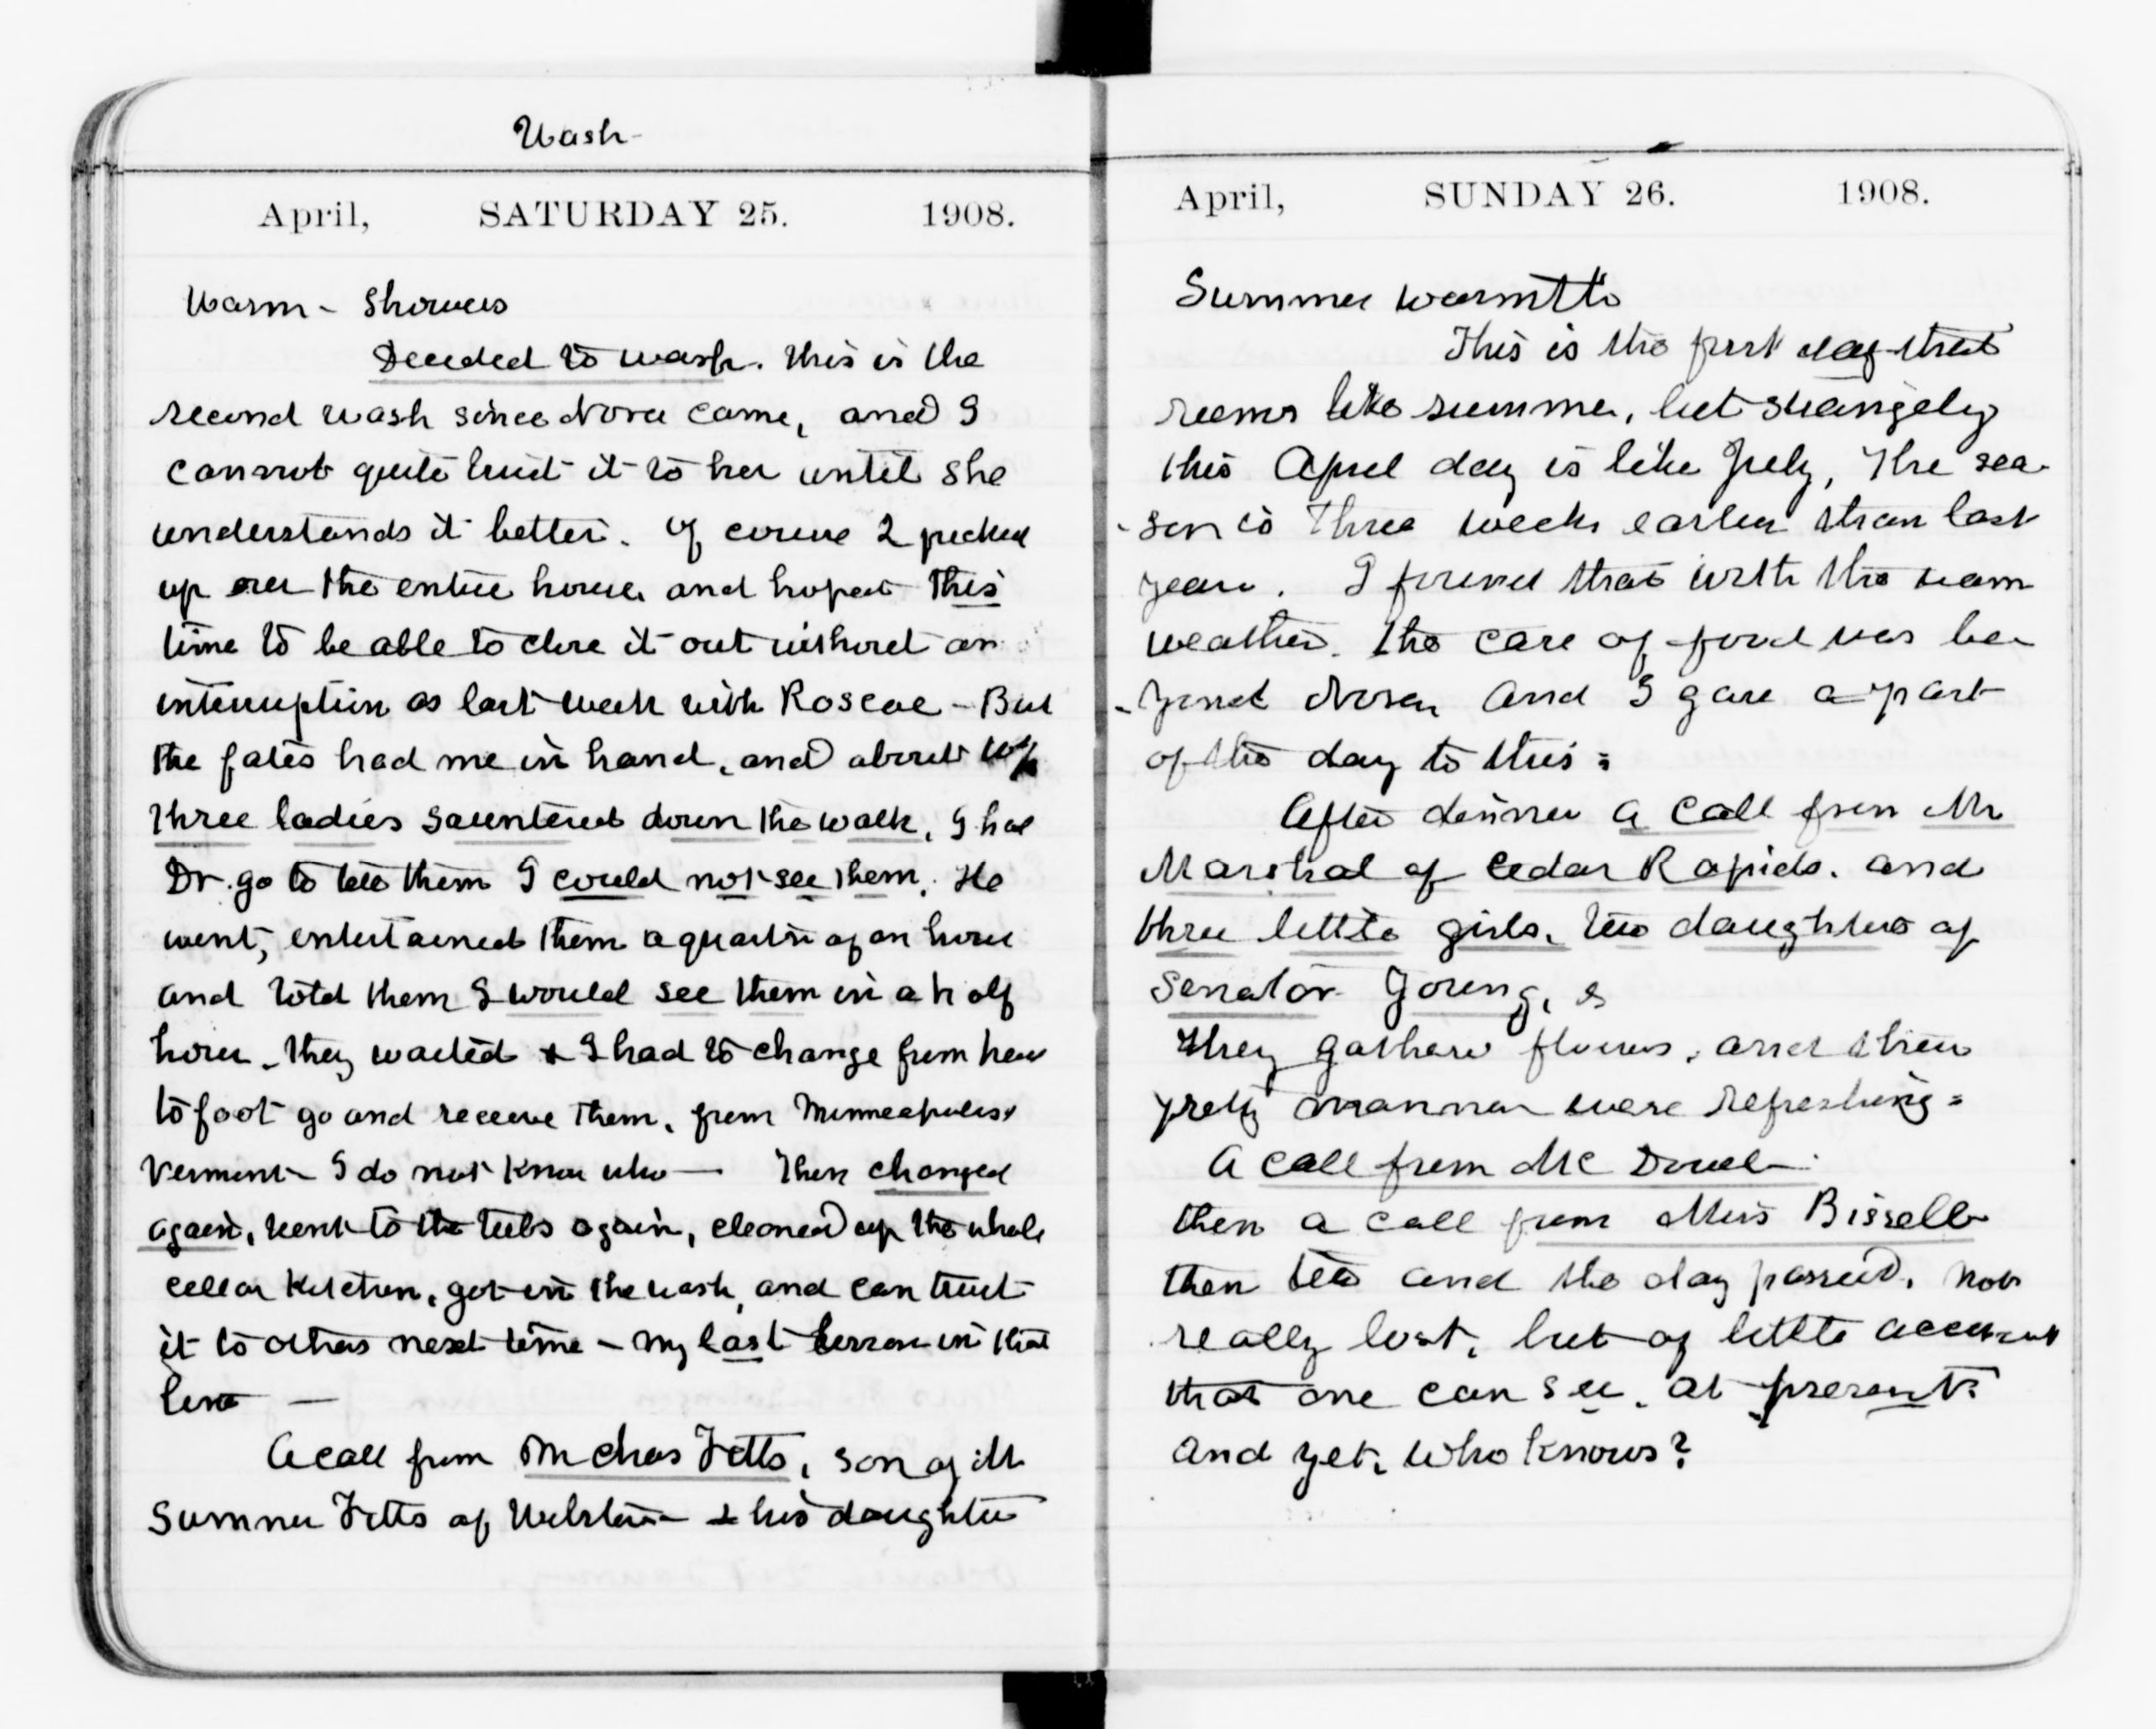 Wash-
April, SATURDAY 25. 1908.
Warm - Showers
Decided to wash. This is the
second wash since Nora came, and I
cannot quite trust it to her until she
understands it better. Of course I picked
up over the entire house and hoped this
time to be able to close it out without an
interruption as last week with Roscoe - But
the fates had me in hand, and about
three ladies sauntered down the walk, I had
Dr. go to tell them I could not see them. He
went, entertained them a quarter of an hour
and told them I would see them in a half
hour - They waited & I had to change from head
to foot go and receive them, from Minneapolis &
Vermont - I do not know who — Then changed
again, went to the tubs again, cleaned up the whole
cellar kitchen, got in the wash, and can trust
it to others next time - my last lesson in that
line —
A call from Mr Chas Fitts, son of Mr
Sumner Fitts of Webster & his daughter
April, SUNDAY 26. 1908.
Summer warmth
This is the first day that
seems like summer, but strangely
this April day is like July, The sea-
-son is three weeks earlier than last
year. I found that with the warm
weather. the care of food was be-
-yond Nora and I gave a part
of the day to this =
After dinner a call from Mr
Marshal of Cedar Rapids. and
three little girls. two daughters of
Senator Young, &
They gathered flowers, and their
pretty manner were refreshing =
A call from Mc Dowel -
then a call from Miss Bissell
then tea and the day passed. not
really lost, but of little account
that one can see. at present.
And yet. Who knows?